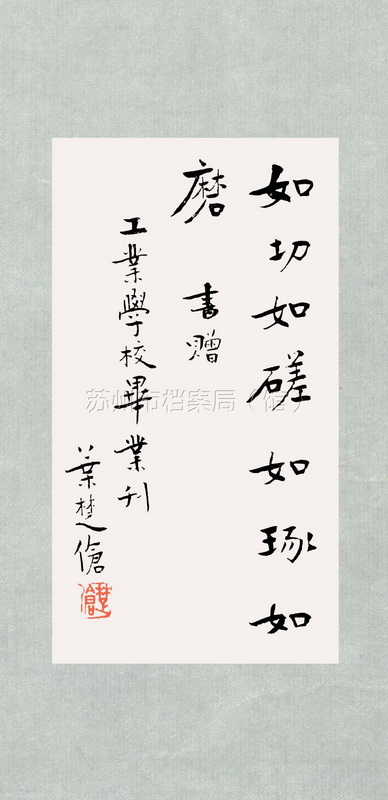 如切如磋如琢如
磨 書贈
工業學校畢業刊
葉楚傖
苏州市档案局（馆）